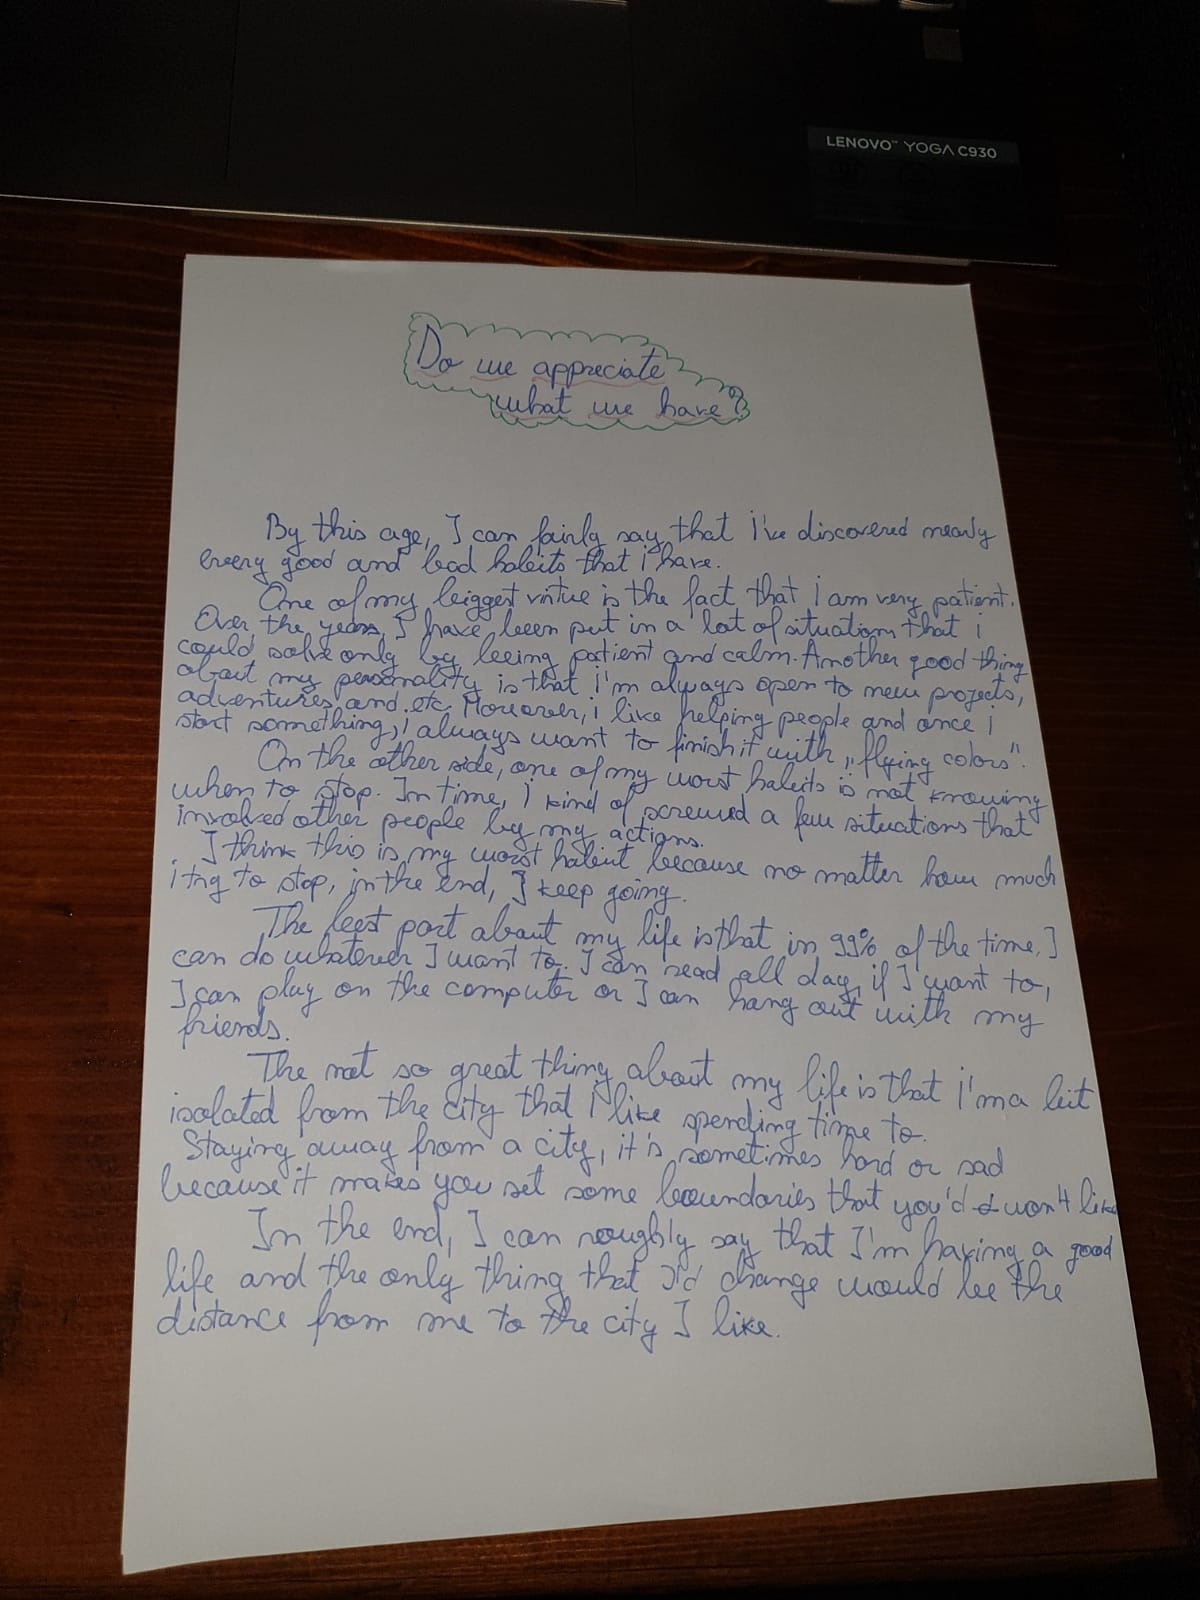 LENOVO™ YOGA C930
Do we appreciate
what we have?
By this age, I can fairly say that i've discovered nearly
every good and bad habits that i have.
One of my biggest virtue is the fact that i am very patient.
Over the years, I have been put in a lot of situations that i
could solve only by being patient and calm. Another good thing
about my personality is that i'm always open to new projects,
adventures, and etc. Moreover, i like helping people and once i
start something, i always want to finish it with „flying colors".
On the other side, one of my worst habits is not knowing
when to stop. In time, i kind of screwed a few situations that
involved other people by my actions.
I think this is my worst habit because no matter how much
i try to stop, in the end, I keep going.
The best part about my life is that in 99% of the time, I
can do whatever I want to. I can read all day, if I want to,
I can play on the computer or I can hang out with my
friends.
The not so great thing about my life is that i'm a bit
isolated from the city that i like spending time to.
Staying away from a city, it is sometimes hard or sad
because it makes you set some boundaries that you'd won't like
In the end, I can roughly say that I'm having a good
life and the only thing that I'd change would be the
distance from me to the city I like.